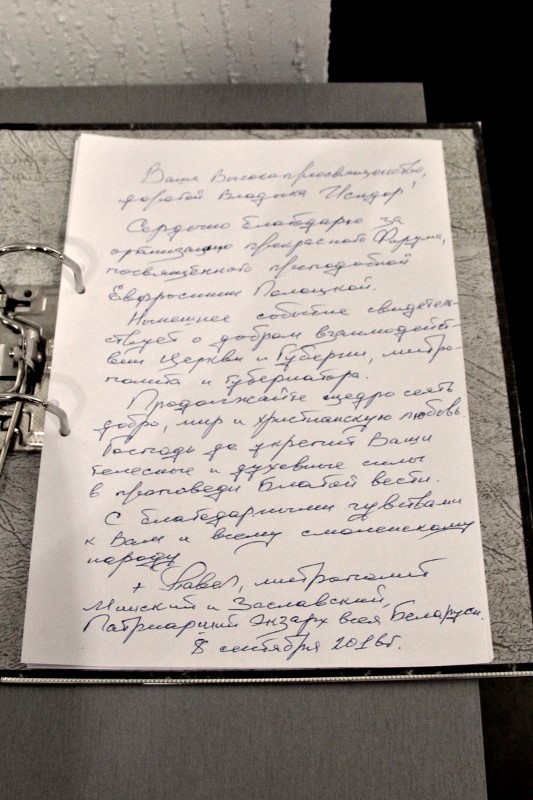 Ваше Высокопреосвященство,
дорогой Владыка Исидор!
Сердечно благодарю за
организацию прекрасного Форума,
посвященного преподобной
Евфросинии Полоцкой.
Нынешнее событие свидетель-
ствует о добром взаимодейст-
вии Церкви и Губернии, митро-
полита и Губернатора.
Продолжайте щедро сеять
добро, мир и христианскую любовь.
Господь да укрепит Ваши
телесные и духовные силы
в проповеди Благой вести.
С благодарными чувствами
к Вам и всему смоленскому
народу
+ Павел, митрополит
Минский и Заславский,
Патриарший Экзарх всея Беларуси.
8 сентября 2016г.